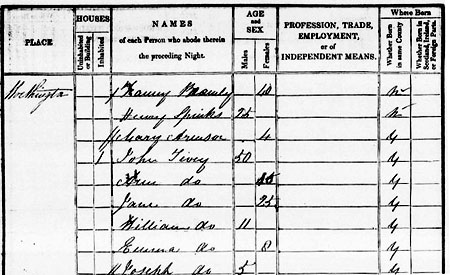 PLACE HOUSES Uninhabited or Building Inhabited NAMES of each Person who abode therein the preceding Night. AGE and SEX Males Females PROFESSION, TRADE, EMPLOYMENT, or of INDEPENDENT MEANS. Where Born Whether Born in same County Whether Born in Scotland, Ireland, or Foreign Parts.
Fanny 40 N
Henry Spinks 25 N
Mary 4 Y
1 John Tivey 50 Y
Ann do Y
Jane do 25 Y
William do 11 Y
Emma do 8 Y
Joseph do 5 Y